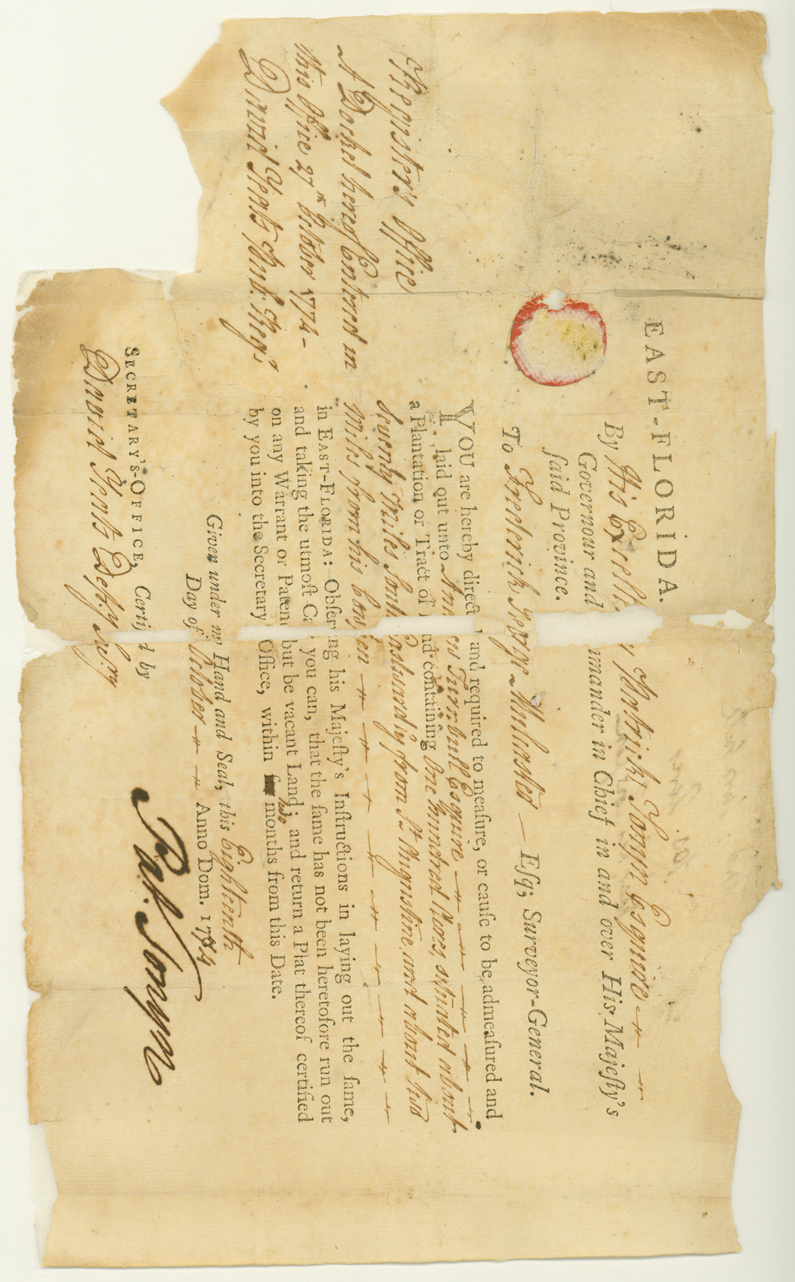 EAST-FLORIDA.
By His Excell y Patrick Tonyn Esquire
Governour and mmander in Chief in and over His Majeſty's
ſaid Province.
To Frederick George Mulcaster — Eſq; Surveyor-General.
YOU are hereby direct and required to meaſure, or cauſe to be admeaſured and
laid out unto And w Turnbull Esquire
a Plantation or Tract of nd containing One Hundred Acres, situated about
Seventy Miles South Eastwardly from St. Augustine, and about two
Miles from his Cow en
in EAST-FLORIDA: Obſer ng his Majeſty's Inſtructions in laying out the ſame,
and taking the utmoſt Ca you can, that the ſame has not been heretofore run out
on any Warrant or Paten but be vacant Land; and return a Plat thereof certified
by you into the Secretary Office, within two months from this Date.
Given under my Hand and Seal, this Eighteenth
Day of October Anno Dom. 1774
Pat. Tonyn
SECRETARY'S-OFFICE, Certi d by
David Yeats Depy. Secry
Register's Office
A Docket hereof Entered in
this Office 27th October 1774-
David Yeats, Dep. Regr.